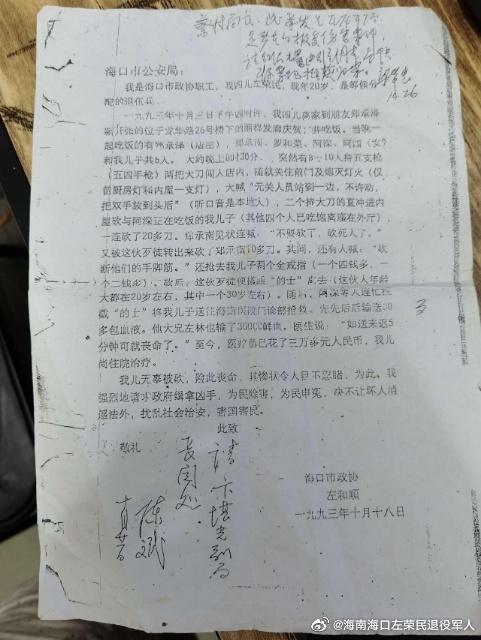 海口市公安局：
我是海口市政协职工，现四儿左荣民，现年20岁，是等候分
配的退伍兵。
一九九三年十月三日下午四时许，我四儿离家到朋友郑承海
新开张的位于龙华路26号楼下的丽祥发廊庆贺；共吃饭。当晚一
起吃饭的有郑承海（店主）、郑承南、罗和荣、阿深、阿四（女）
和我儿子共6人。大约晚上8时30分，突然有8－10人持五支枪
（五四手枪）两把大刀闯入店内，随就关住前门及熄灭灯火（仅
留厨房灯和内屋一支灯），大喊“无关人员站到一边，不许动，
把双手放到头后”（听口音是本地人），二个持大刀的直冲进内
屋砍与阿深正在吃饭的我儿子（其他四个人已吃饱离座在外厅）
一连砍了20多刀。郑承南见状连喊：“不要砍了，砍死人了。”
又被这伙歹徒转出来砍了郑承南10多刀。其间，还有人喊：“砍
断他们的手脚筋。”还抢去我儿子两个金戒指（一个四钱多，一
个二钱多）。砍后，这伙歹徒便搭乘“的士”离去（这伙人年龄
大都在20岁左右，其中一个30岁左右）。随后，阿深等人连忙拦
截“的士”将我儿子送往海南医院门诊部抢救。先先后后输送30
多包血液。他大兄左林也输了300CC鲜血。医生说：“如送来迟5
分钟可就丧命了。”至今，医疗费已花了三万多元人民币，我儿
尚住院治疗。
我儿无辜被砍，险此丧命，其惨状令人目不忍睹，为此，我
强烈地请求政府缉拿凶手，为民除害，为民申冤，决不让坏人消
遥法外，扰乱社会治安，害国害民。
此致
敬礼
海口市政协
左和顺
一九九三年十月十八日
10.26
@海南海口左荣民退役军人